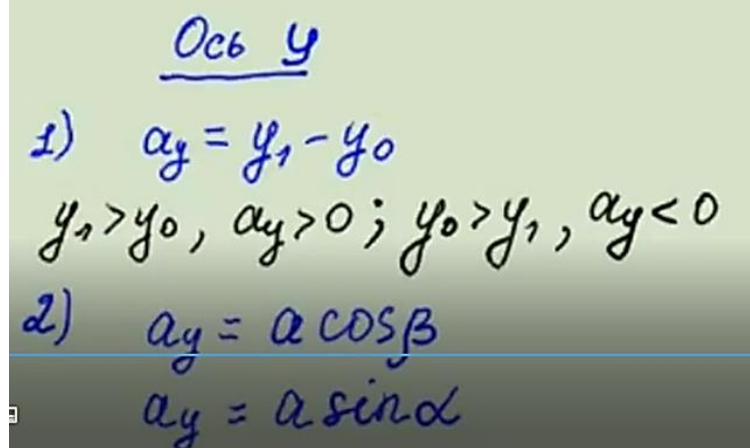 Ось y
1) ay = y₁ - y₀
y₁ > y₀, ay > 0; y₀ > y₁, ay < 0
2) ay = a cosβ
ay = a sinα